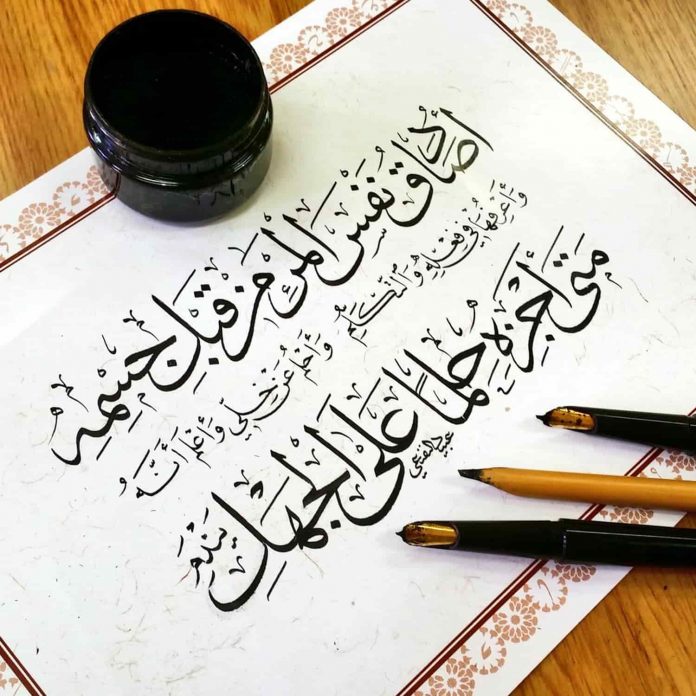 أصادق نفس المرء من قبل جسمه
وأعرفها في فعله والتكلم وأحلم عن خلي وأعلم أنه
متى أجزه حلما على الجهل يندم